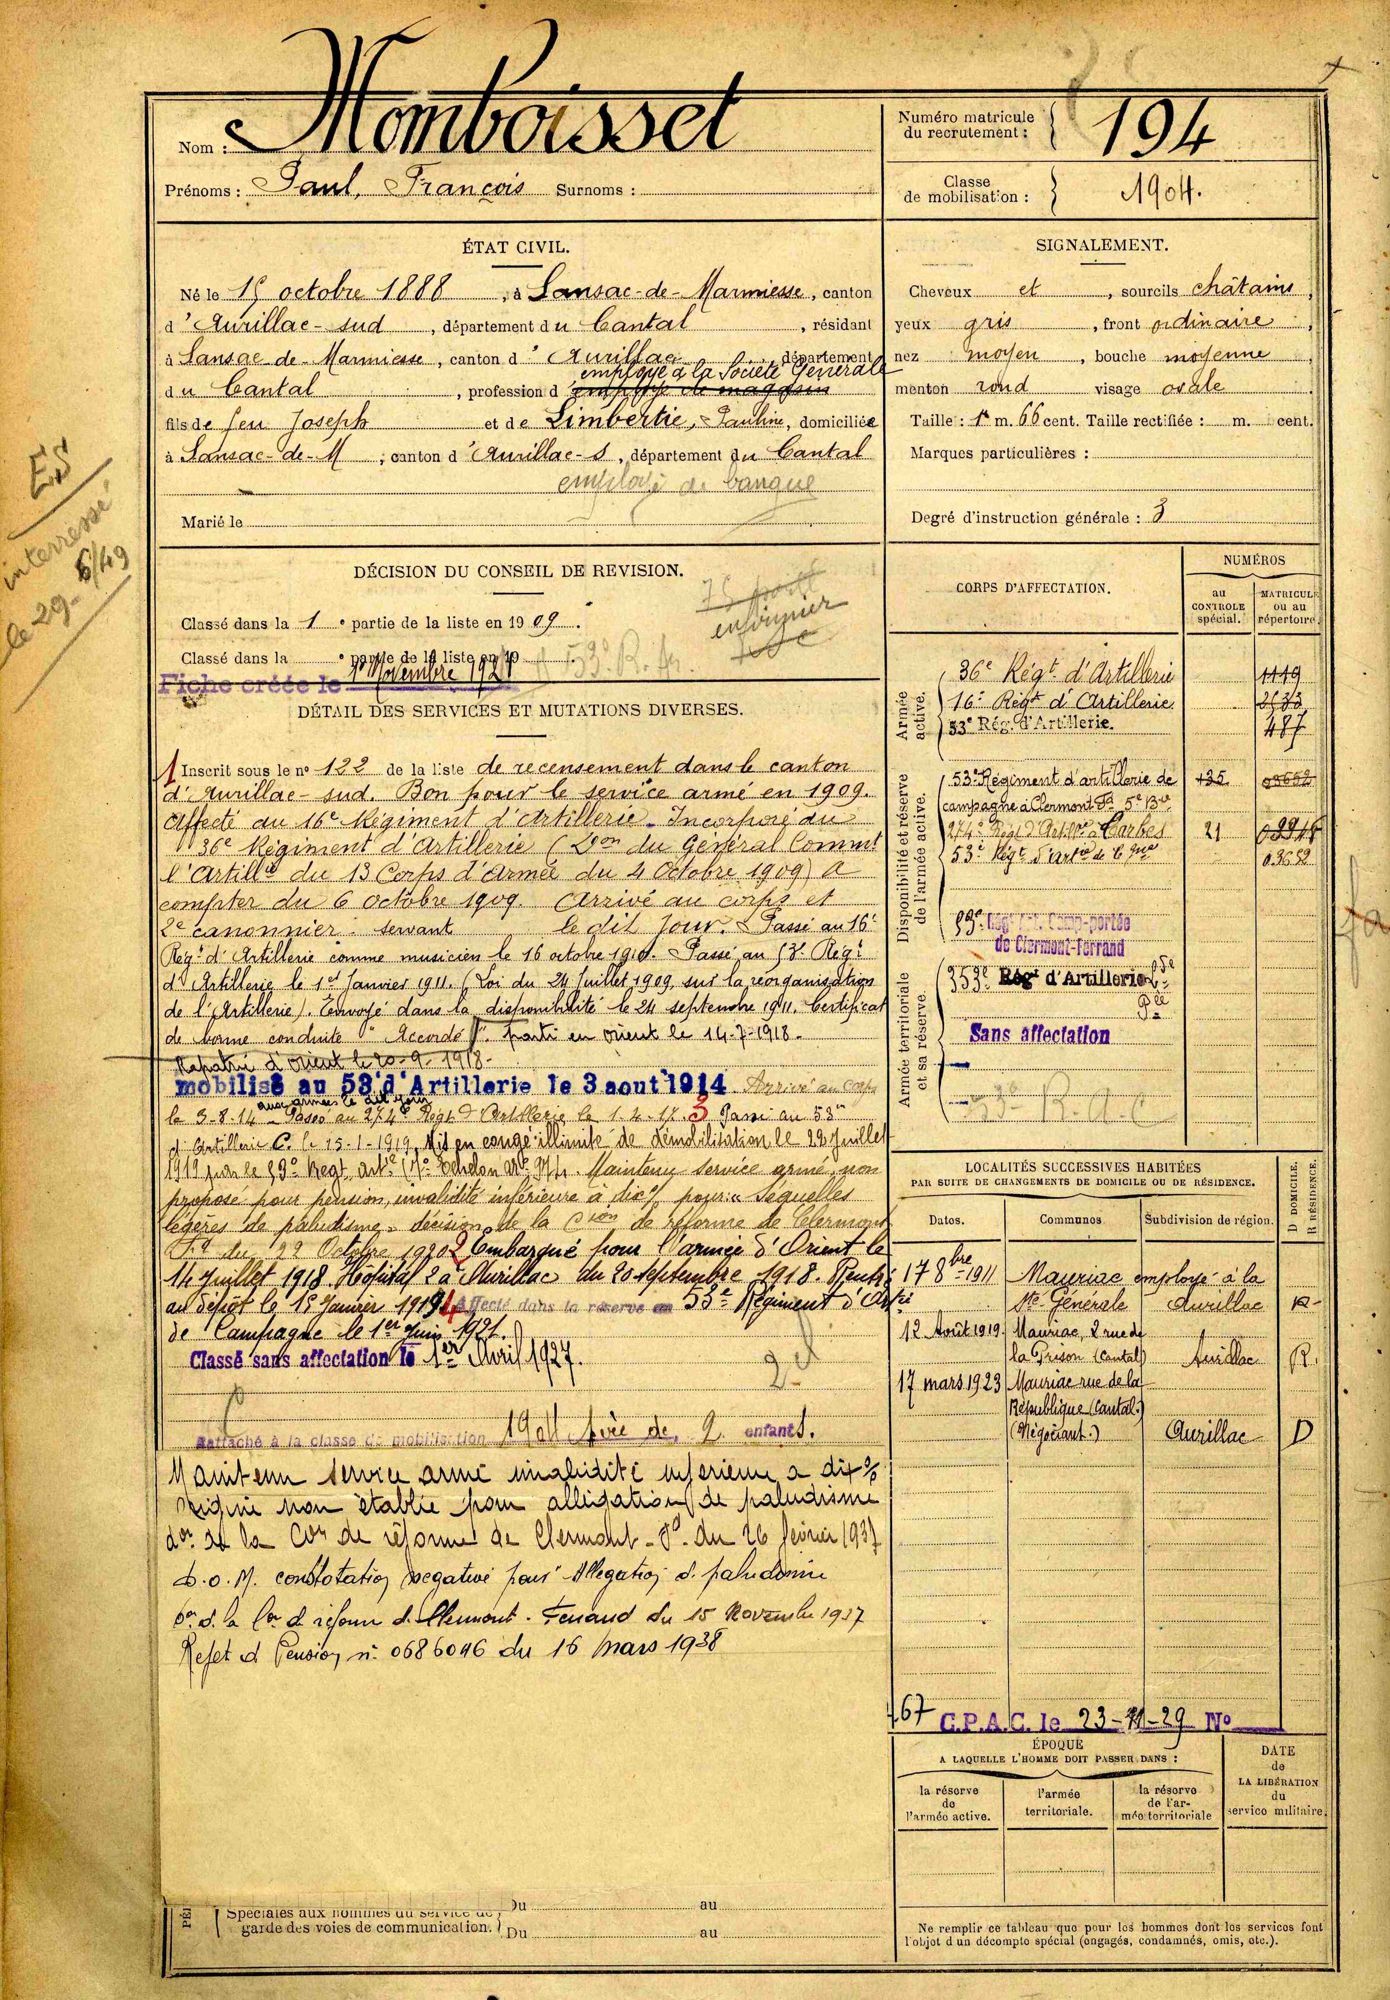 Nom : Momboisset
Prénoms : Paul, François Surnoms :
Numéro matricule du recrutement : 194
Classe de mobilisation : 1904.
ÉTAT CIVIL.
Né le 15 octobre 1888, à Sansac-de-Marmiesse, canton
d'Aurillac-sud, département du Cantal, résidant
à Sansac-de-Marmiesse, canton d'Aurillac, département
employé à la Société Générale
du Cantal, profession d'employé de magasin
fils de feu Joseph et de Limbertie, Pauline, domiciliée
à Sansac-de-M, canton d'Aurillac-S, département du Cantal
employé de banque
Marié le
SIGNALEMENT.
Cheveux et, sourcils châtains,
yeux gris, front ordinaire,
nez moyen, bouche moyenne
menton rond visage ovale
Taille : 1 m. 66 cent. Taille rectifiée : m. cent.
Marques particulières :
Degré d'instruction générale : 3
ES
interressé
le 29-6/49
DÉCISION DU CONSEIL DE REVISION.
Classé dans la 1e partie de la liste en 1909.
Classé dans la e partie de la liste en 19
75
53e R. Ar.
Fiche créée le 1er Novembre 1921
DÉTAIL DES SERVICES ET MUTATIONS DIVERSES.
1 Inscrit sous le no 122 de la liste de recensement dans le canton
d'Aurillac-sud. Bon pour le service armé en 1909.
Affecté au 16e Régiment d'Artillerie. Incorporé au
36e Régiment d'Artillerie (Don du Général Commt
l'Artillie du 13 Corps d'Armée du 4 Octobre 1909) à
compter du 6 octobre 1909. Arrivé au corps et
2e canonnier servant le dit jour. Passé au 16e
Régt d'Artillerie comme musicien le 16 octobre 1910. Passé au 53e Régt
d'Artillerie le 1er Janvier 1911. (Loi du 24 Juillet 1909, sur la réorganisation
de l'Artillerie). Envoyé dans la disponibilité le 24 septembre 1911. Certificat
de bonne conduite "Accordé". Parti en orient le 14-7-1918-
Rapatrié d'Orient le 20-9-1918-
mobilisé au 53e d'Artillerie le 3 aout 1914 Arrivé au corps
aux armées le dit jour
le 3-8-14 Passé au 274e Régt d'Artillerie le 1.4.17. 3 Passé au 53e
d'Artillerie C. le 15-1-1919, Mis en congé illimité de démobilisation le 22 Juillet
1919 par le 53e Regt Artie (7e Echelon Nre 974. Maintenu service armé, non
proposé pour pension, invalidité inférieure à dix% pour : "Séquelles
légères de paludisme" décision de la Cion de réforme de Clermont
Fd du 22 Octobre 1920 2 Embarqué pour l'armée d'Orient le
14 Juillet 1918. Hôpital 2 à Aurillac du 20 septembre 1918. Rentré
au dépôt le 15 Janvier 1919 4 Affecté dans la réserve au 53e Régiment d'Artie
de Campagne le 1er Juin 1921.
Classé sans affectation le 1er Avril 1927.
Rattaché à la classe de mobilisation 1904 Père de 2 enfants.
Maintenu service armé invalidité inférieure à dix%
origine non établie pour allégation de paludisme
don de la Con de réforme de Clermont-Fd du 26 février 1937
D.O.M. constatation négative pour allégation de paludisme
Don de la Con de réforme de Clermont-Ferrand du 15 Novembre 1937
Rejet de Pension no 0686096 du 16 mars 1938
CORPS D'AFFECTATION.
NUMÉROS
au CONTROLE spécial.
MATRICULE ou au répertoire.
Armée active.
36e Régt d'Artillerie 1119
16e Régt d'Artillerie
53e Rég. d'Artillerie. 487
Disponibilité et réserve de l'armée active.
53e Régiment d'artillerie de 435
campagne à Clermont Fd 5e Bie
274e Régt d'Artie à Tarbes 21
53e Régt d'Artie de Cgne 03652
53e Rég. Art. Camp-portée
de Clermont-Ferrand
Armée territoriale et sa réserve.
353e Régt d'Artillerie
Sans affectation
53e R.A.C
LOCALITÉS SUCCESSIVES HABITÉES
PAR SUITE DE CHANGEMENTS DE DOMICILE OU DE RÉSIDENCE.
D DOMICILE.
R RÉSIDENCE.
Dates. Communes Subdivision de région.
17 8bre 1911 Mauriac employé à la
Sté Générale Aurillac R
12 Août 1919. Mauriac, 2 rue de
la Prison (Cantal) Aurillac R.
17 mars 1923 Mauriac rue de la
République (Cantal.)
(Négociant.) Aurillac D
467 C.P.A.C. le 23-11-29 No
ÉPOQUE
A LAQUELLE L'HOMME DOIT PASSER DANS :
la réserve de l'armée active.
l'armée territoriale.
la réserve de l'armée territoriale
DATE de LA LIBÉRATION du service militaire.
Spéciales aux hommes du service de garde des voies de communication.
Du au
Du au
Ne remplir ce tableau que pour les hommes dont les services font
l'objet d'un décompte spécial (engagés, condamnés, omis, etc.).